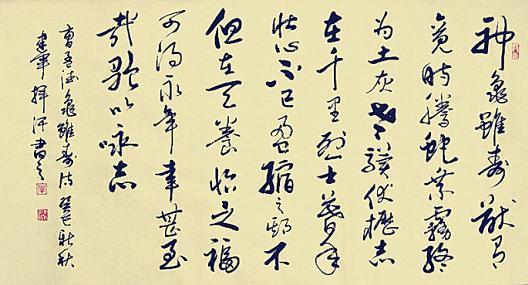 神龜雖壽猷有
竟時騰蛇乘霧終
為土灰老驥伏櫪志
在千里烈士暮年
壯心不已盈縮之期不
但在天養怡之福
可得永年幸甚至
哉歌以詠志
曹孟德龜雖壽詩癸巳新秋
建軍揮汗書之